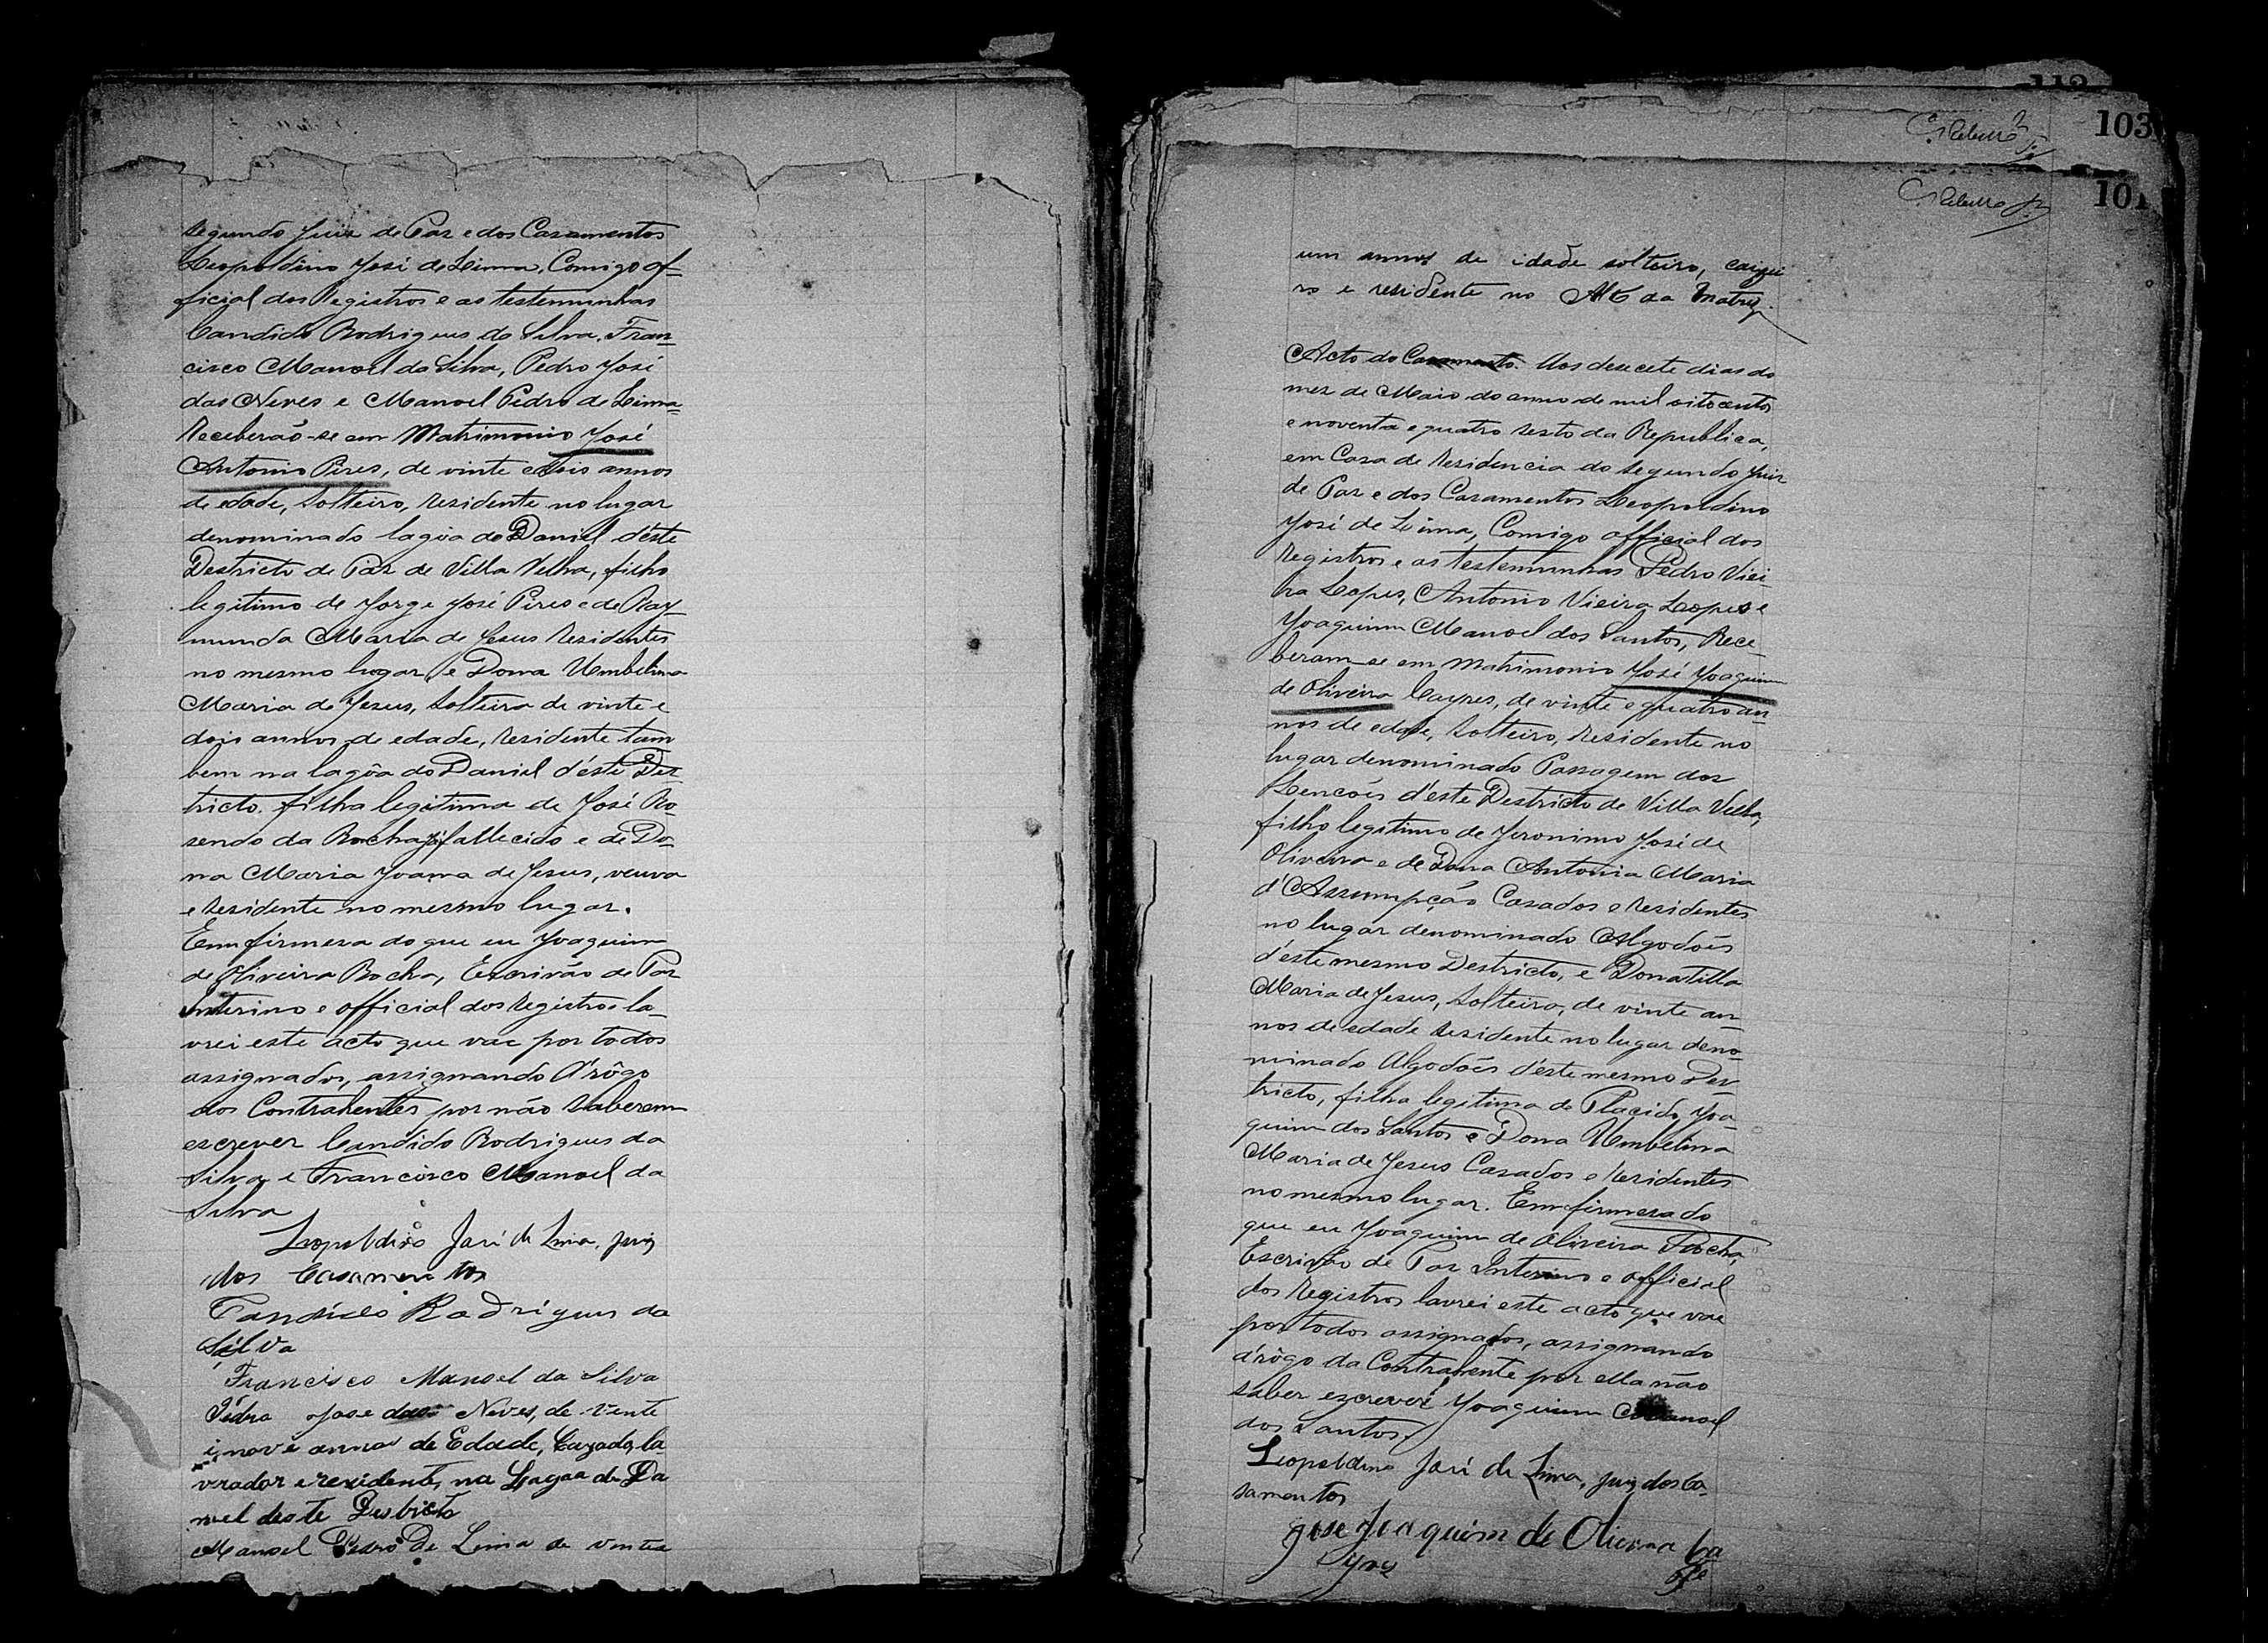 segundo Juiz de Paz e dos Casamentos
Leopoldino José de Lima, Comigo of-
ficial dos Registros e as testemunhas
Candido Rodrigues da Silva, Fran-
cisco Manoel da Silva, Pedro José
das Neves e Manoel Pedro de Lima
Receberão-se em Matrimonio José
Antonio Pires, de vinte e dois annos
de edade, solteiro, residente no lugar
denominado lagôa do Daniel d'éste
Destricto de Paz de Villa Velha, filho
legitimo de Jorge José Pires e de Ray-
munda Maria de Jesus residentes
no mesmo lugar, e Dona Umbelina
Maria de Jesus, solteira de vinte e
dois annos de edade, residente tam
bem na lagôa do Daniel d'éste Des
tricto. filha legitima de José Ro-
sendo da Rocha já fallecido e de Do-
na Maria Joana de Jesus, veuva
e residente no mesmo lugar.
Em firmesa do que eu Joaquim
de Oliveira Rocha, Escrivão de Paz
Interino e official dos registros la-
vrei este acto que vae por todos
assignados, assignando Á rôgo
dos Contrahentes por não saberem
escrever Candido Rodrigues da
Silva e Francisco Manoel da
Silva
Leopoldino José de Lima, juiz
dos Casamentos
Candido Rodrigues da
Silva
Francisco Manoel da Silva
Pedro Jose das Neves, de vente
i nove annos de Edade, Cazado, la-
vrador e rezidente, na Lagoa do Da
niel deste Destricto
Manoel Pedro De Lima de vente
103
101
um annos de idade solteiro, caixei
ro e residente no da Matriz.
Acto do Casamento. Aos desecete dias do
mez de Maio do anno de mil oitocentos
e noventa e quatro sesto da Republica,
em Casa de residencia do segundo Juiz
de Paz e dos Casamentos Leopoldino
José de Lima, Comigo official dos
registros e as testemunhas Pedro Viei-
ra Lopes, Antonio Vieira Lopes e
Joaquim Manoel dos Santos, Rece-
beram-se em matrimonio José Joaquim
de Oliveira Cayres, de vinte e quatro an-
nos de edade, solteiro, residente no
lugar denominado Passagem dos
Lencóes d'éste Destricto de Villa Velha,
filho legitimo de Jeronimo José de
Oliveira e de Dona Antonia Maria
d'Assumpção Casados e residentes
no lugar denominado Algodões
d'éste mesmo Destricto, e Dona Tilla
Maria de Jesus, solteira, de vinte an-
nos de edade residente no lugar deno-
minado Algodões d'éste mesmo Des
tricto, filha legitima de Placido Joa-
quim dos Santos e Dona Umbelina
Maria de Jesus Casados e residentes
no mesmo lugar. Em firmesa do
que eu Joaquim de Oliveira Rocha,
Escrivão de Paz Interino e official
dos registros lavrei este acto que vae
por todos assignados, assignando
á rôgo da Contrahente por ella não
saber escrever Joaquim Manoel
dos Santos.
Leopoldino José de Lima, juiz dos Ca-
samentos
Jose Joaquim de Oliveira Ca
yres